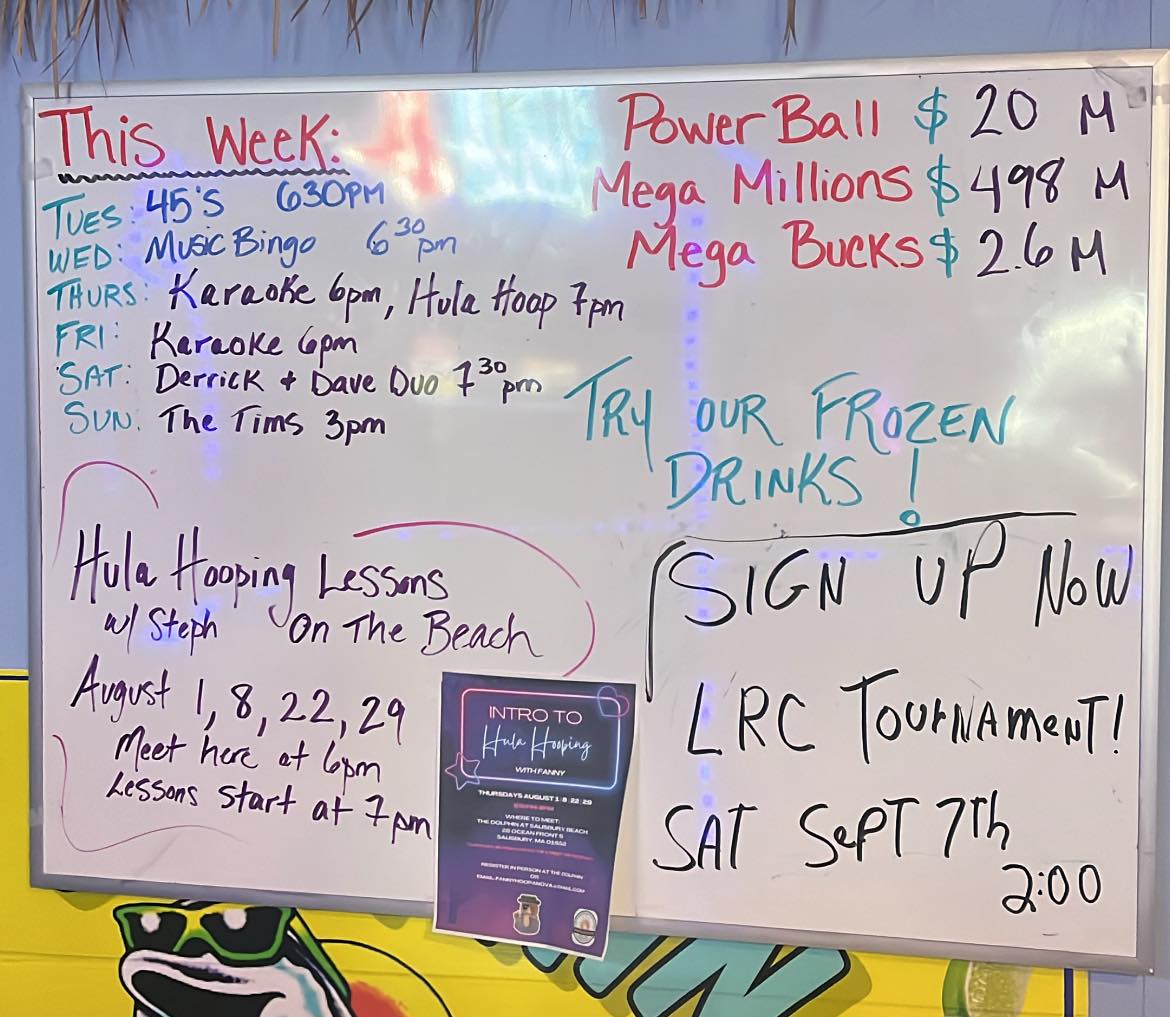 This Week:
TUES: 45'S 630PM
WED: Music Bingo 6³⁰ pm
THURS: Karaoke 6pm, Hula Hoop 7pm
FRI: Karaoke 6pm
SAT: Derrick + Dave Duo 7³⁰ pm
SUN: The Tims 3pm
Power Ball $ 20 M
Mega Millions $ 498 M
Mega Bucks $ 2.6 M
TRY OUR FROZEN
DRINKS!
Hula Hooping Lessons
w/ Steph On The Beach
August 1, 8, 22, 29
Meet here at 6pm
Lessons start at 7pm
INTRO TO
Hula Hooping
WITH FANNY
THURSDAYS AUGUST 1 8 22 29
WHERE TO MEET:
THE DOLPHIN AT SALISBURY BEACH
28 OCEAN FRONT S
SALISBURY, MA 01952
REGISTER IN PERSON AT THE DOLPHIN
OR
EMAIL: FANNYHOOPANOVA@GMAIL.COM
SIGN UP NOW
LRC TOURNAMENT!
SAT SEPT 7Th
2:00